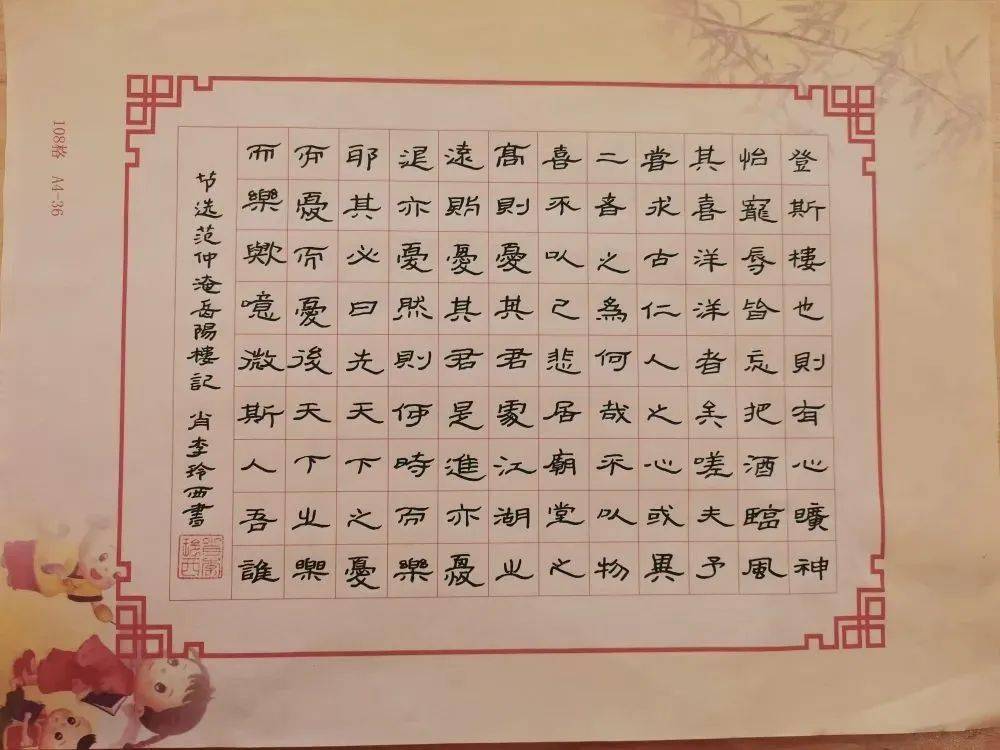 登斯樓也則有心曠神
怡寵辱皆忘把酒臨風
其喜洋洋者矣嗟夫予
嘗求古仁人之心或異
二者之為何哉不以物
喜不以己悲居廟堂之
髙則憂其君處江湖之
遠則憂其君是進亦憂
退亦憂然則何時而樂
耶其必曰先天下之憂
而憂而憂後天下之樂
而樂歟噫微斯人吾誰
节选范仲淹岳陽樓記 肖李玲西書
108格 A4-36